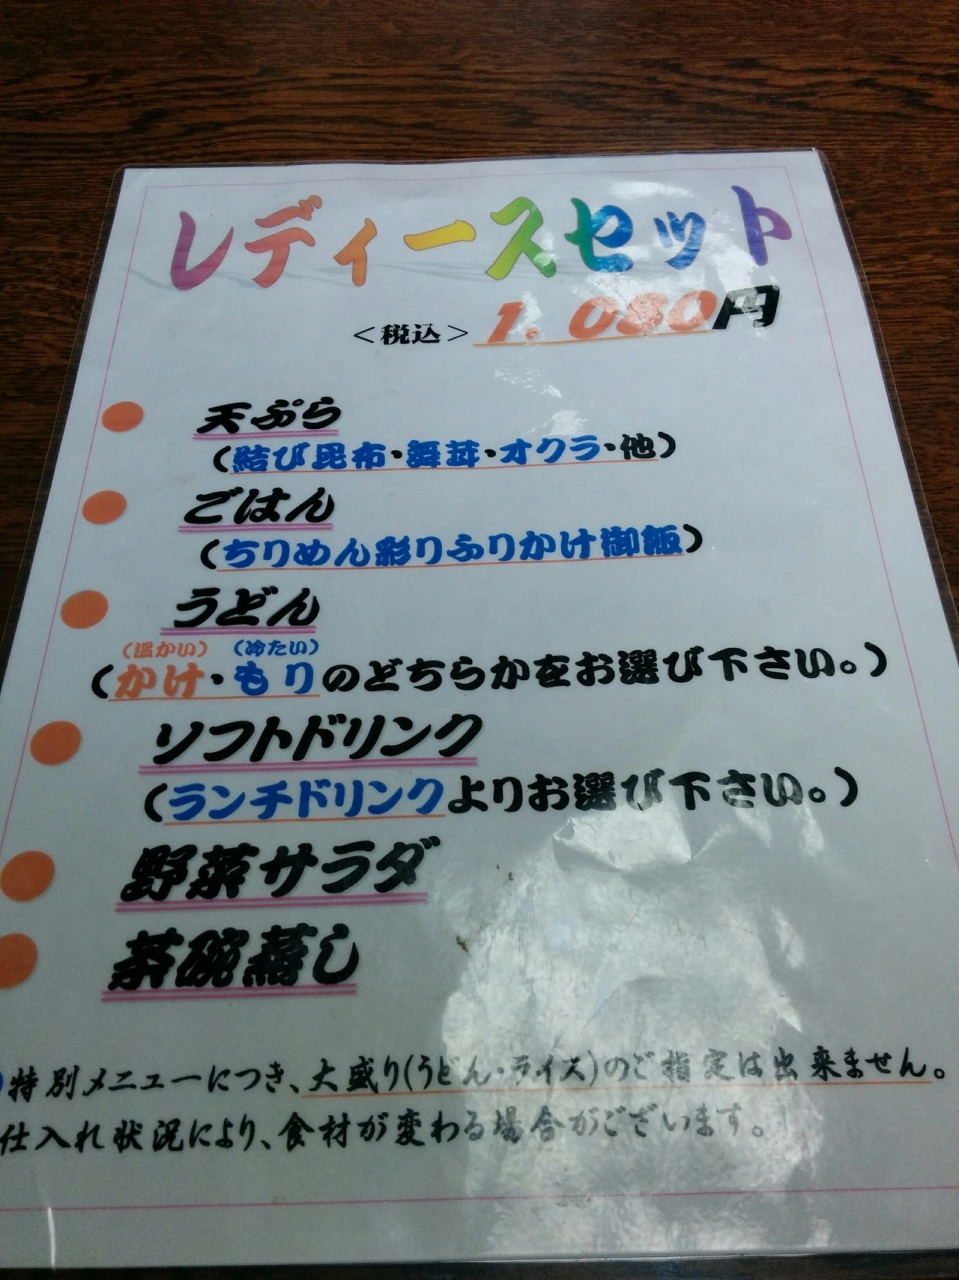 レディースセット
＜税込＞1,080円
天ぷら
(結び昆布・舞茸・オクラ・他)
ごはん
(ちりめん彩りふりかけ御飯)
うどん
(温かい) (冷たい)
(かけ・もりのどちらかをお選び下さい。)
ソフトドリンク
(ランチドリンクよりお選び下さい。)
野菜サラダ
茶碗蒸し
特別メニューにつき、大盛り(うどん・ライス)のご指定は出来ません。
仕入れ状況により、食材が変わる場合がございます。